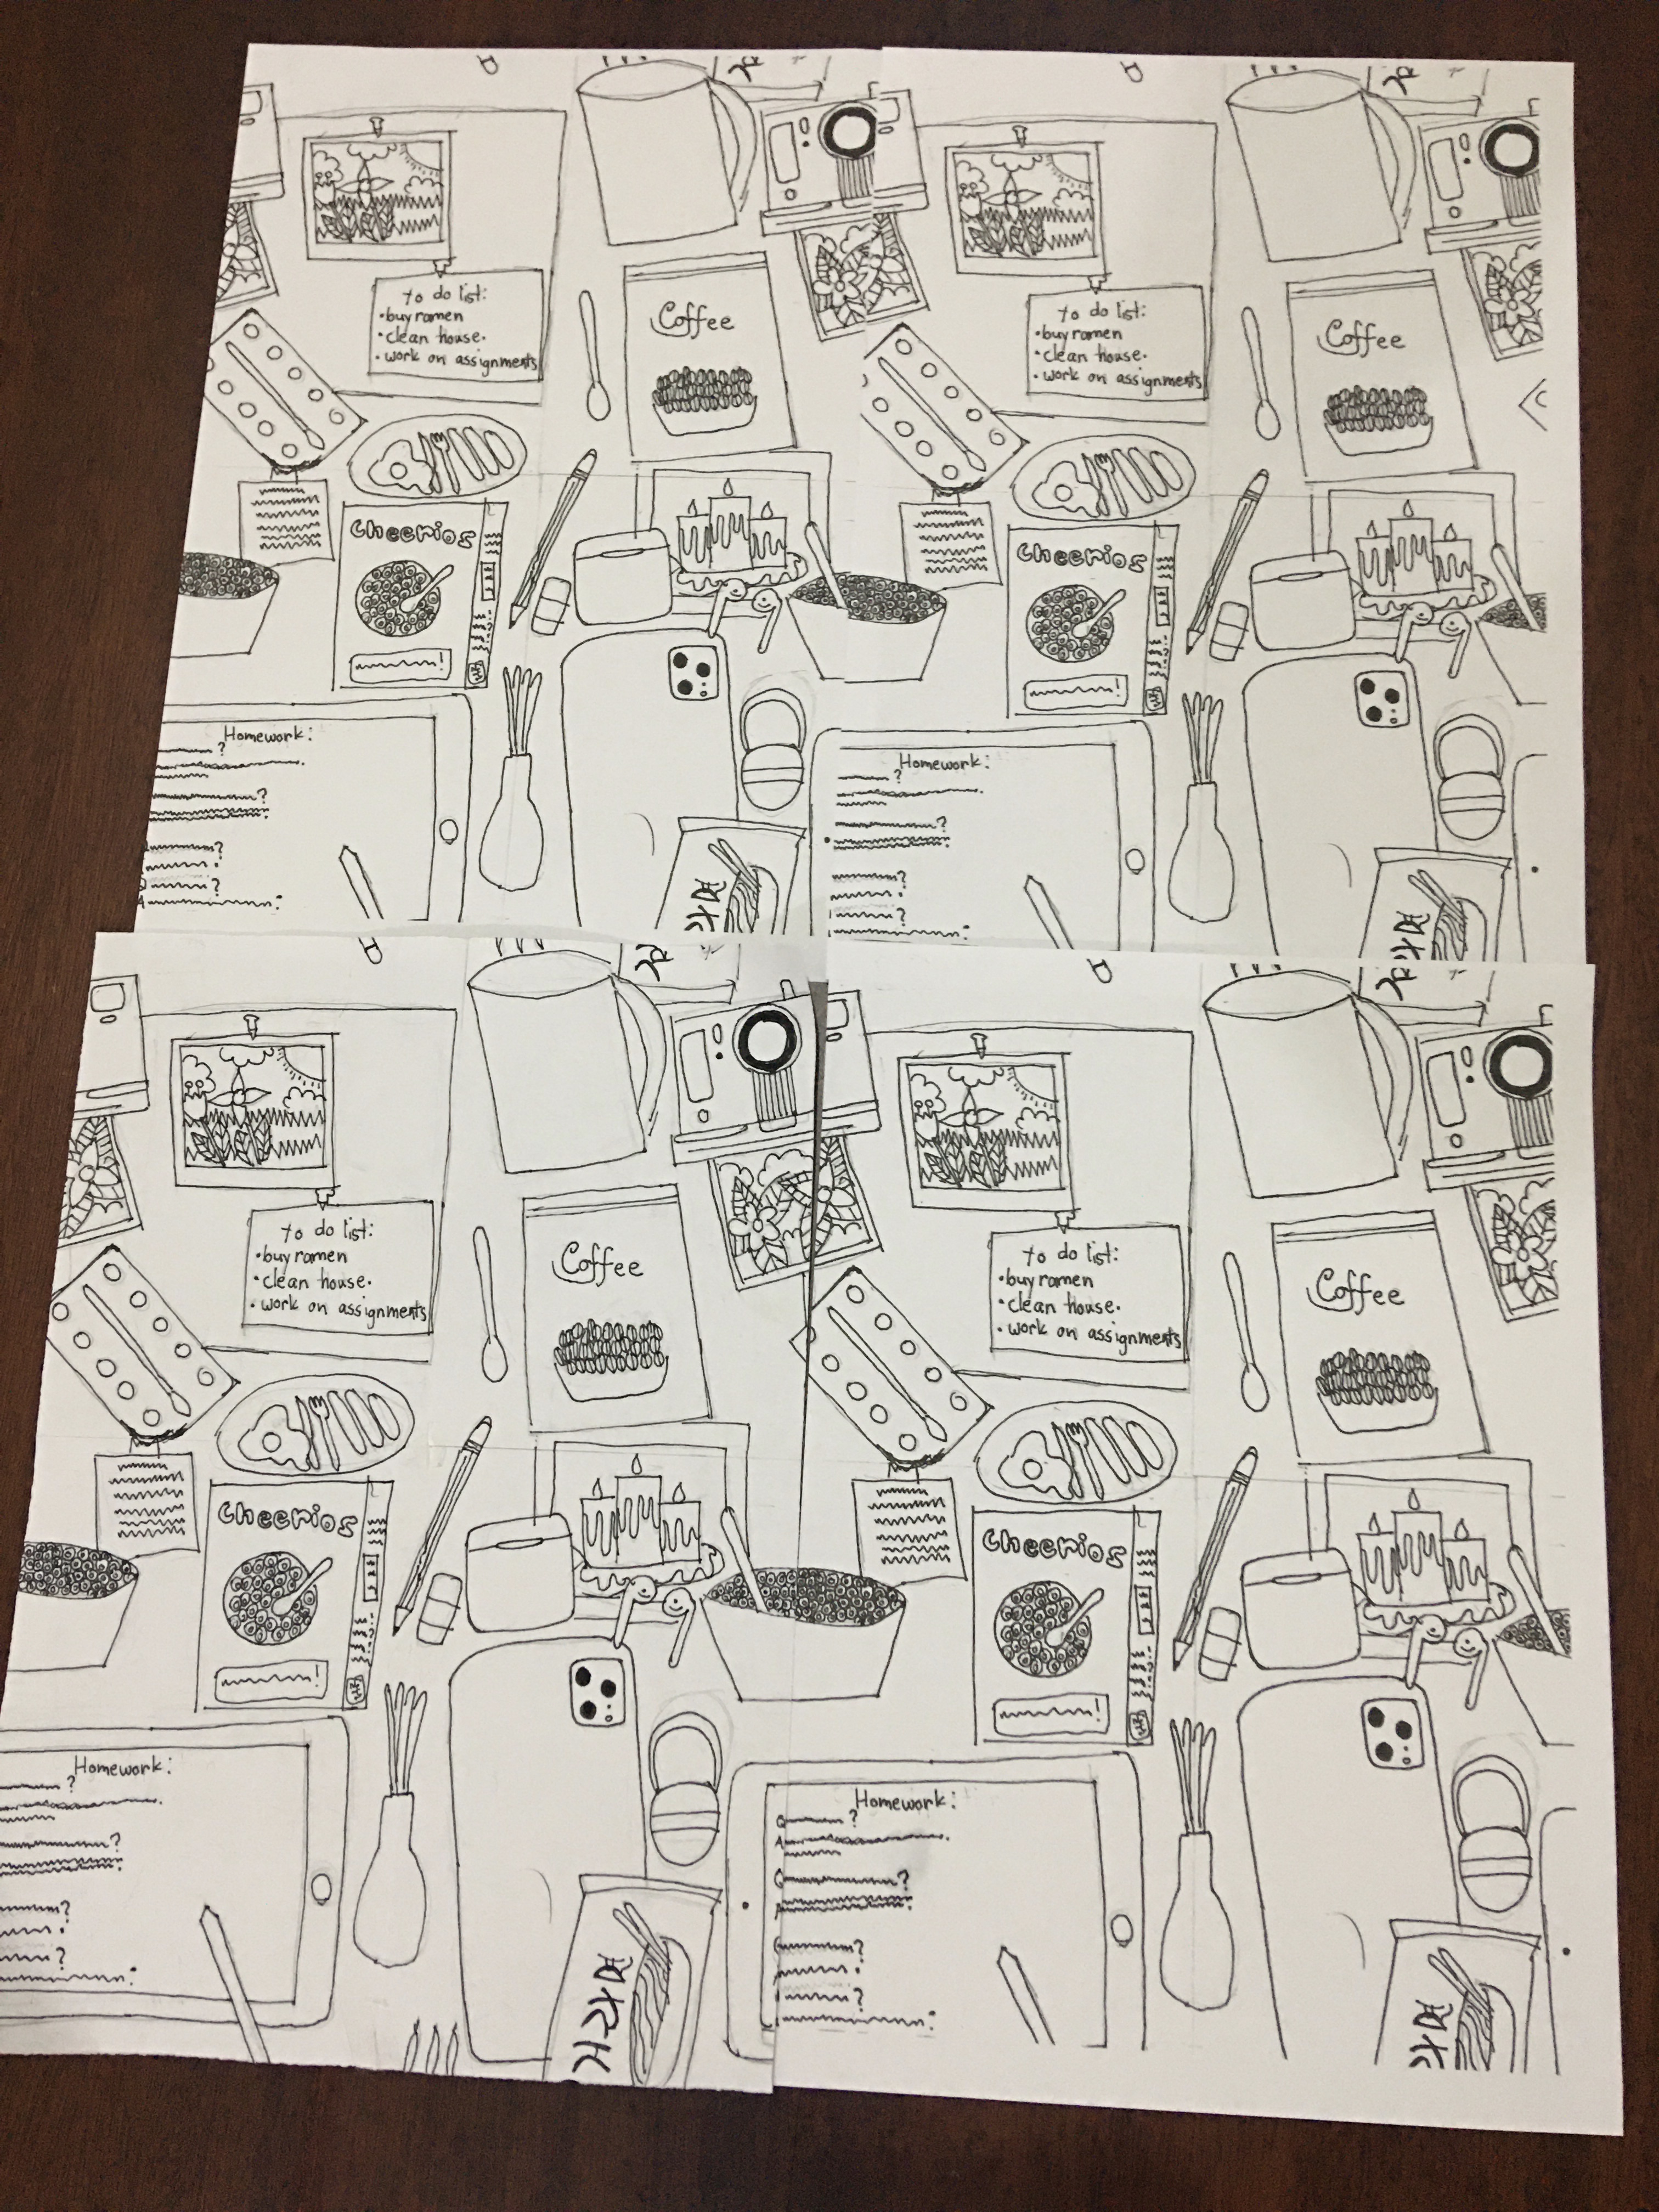 to do list:
•buy ramen
•clean house.
•work on assignments
Coffee
Cheerios
Homework:
to do list:
•buy ramen
•clean house.
•work on assignments
Coffee
Cheerios
Homework:
to do list:
•buy ramen
•clean house.
•work on assignments
Coffee
Cheerios
Homework:
to do list:
•buy ramen
•clean house.
•work on assignments
Coffee
Cheerios
Homework: